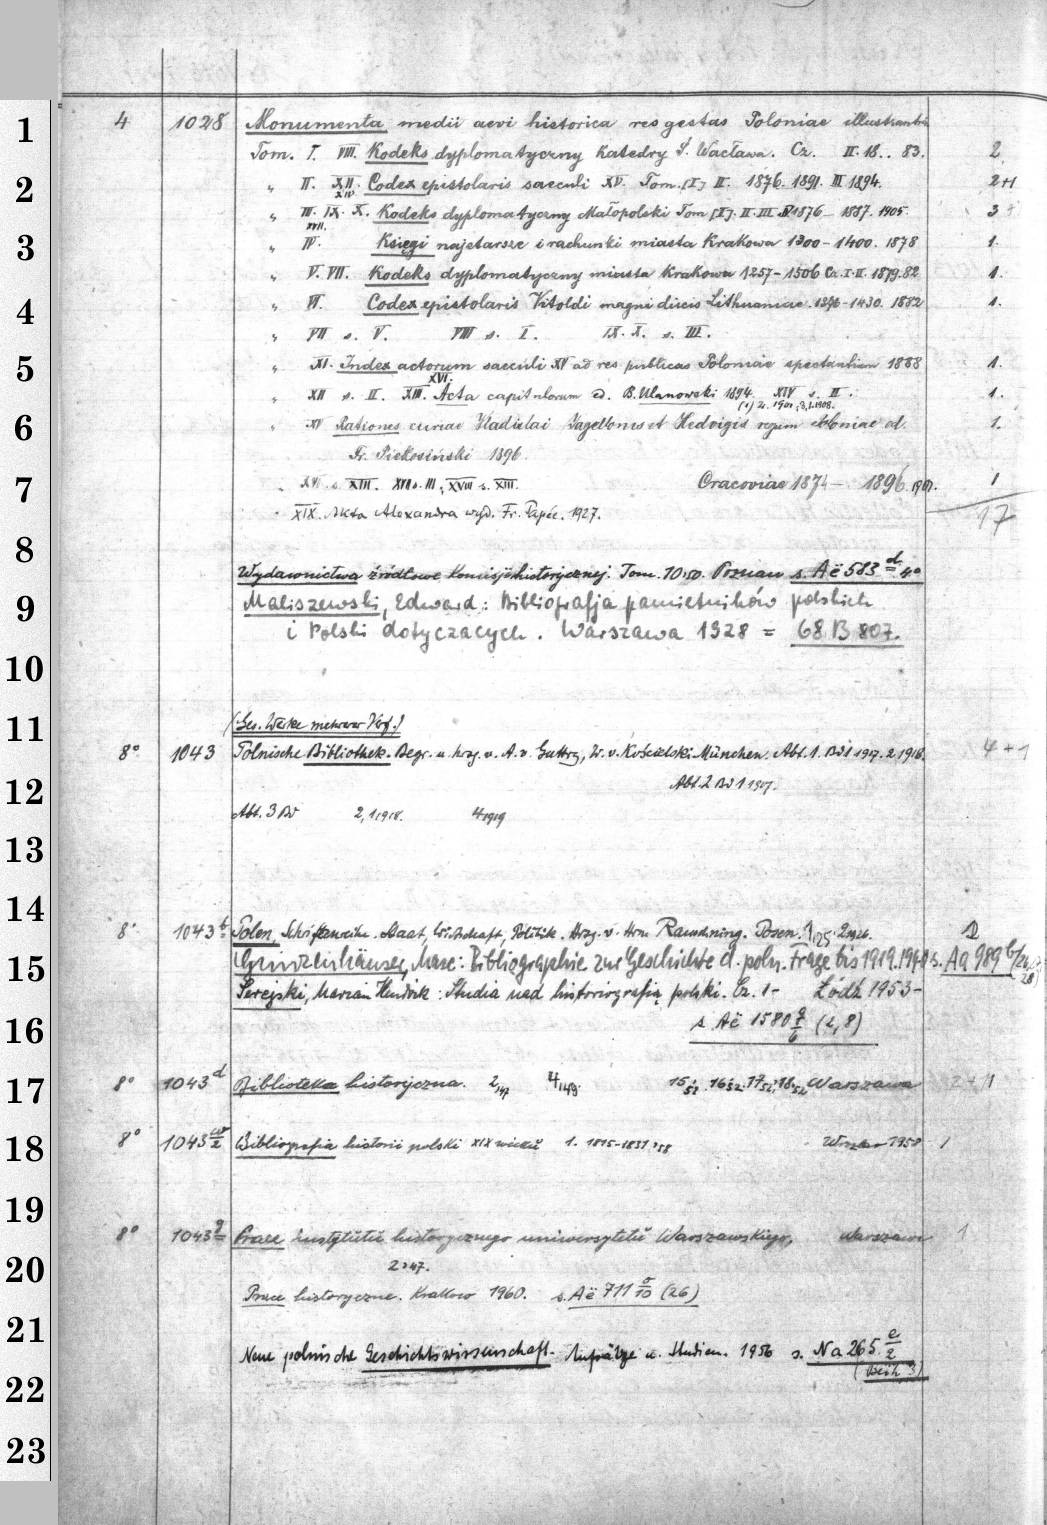 1
2
3
4
5
6
7
8
9
10
11
12
13
14
15
16
17
18
19
20
21
22
23
4 1028 Monumenta medii aevi historica res gestas Poloniae illustrantia
Tom. I. VIII. Kodeks dyplomatyczny Katedry Ś. Wacława. Cz. II. 18.. 83. 2
„ II. XII. XIV Codex epistolaris saeculi XV. Tom. [I] II. 1876. 1891. III 1894. 2+1
„ III. IX. X. XVII. Kodeks dyplomatyczny Małopolski Tom [I]. II. III. IV 1876 - 1887. 1905. 3
„ IV. Księgi najstarsze i rachunki miasta Krakowa 1300 - 1400. 1878 1.
„ V. VII. Kodeks dyplomatyczny miasta Krakowa 1257 - 1506 Cz. I-II. 1879.82 1.
„ VI. Codex epistolaris Vitoldi magni ducis Lithuaniae. 1376 - 1430. 1882 1.
„ VII s. V. VIII s. I. IX. X. s. III.
„ XI. Index actorum saeculi XV ad res publicas Poloniae spectantium 1888 1.
„ XII s. II. XIII. XVI. Acta capitulorum ed. B. Ulanowski 1894. XIV s. II. 1.
(1) 2. 1901, 3,1.1908.
„ XV Rationes curiae Vladislai Jagellonis et Hedvigis regum Poloniae ed. 1.
Fr. Piekosiński 1896.
„ XVI s. XIII. XVII s. III, XVIII s. XIII. Cracoviae 1874 - 1896. 1901. 1
„ XIX. Akta Alexandra wyd. Fr. Papée. 1927. 17
Wydawnictwa źródłowe Komisji historycznej. Tom. 10.50. Poznan s. Aë 583 d 4o
Maliszewski, Edward: Bibliografja pamiętników polskich
i Polski dotyczących. Warszawa 1928 = 68 B 807.
(Ges. Werke mehrerer Verf.)
8o 1043 Polnische Bibliothek. Begr. u. hrsg. v. A. v. Guttry, W. v. Kościelski. München. Abt. 1. Bd 1 1917. 2 1918. 4 + 1
Abt. 2 Bd 1 1917.
Abt. 3 Bd 2,1 1918. 4 1919
8o 1043 b Polen, Schriftenreihe. Staat, Wirtschaft, Politik. Hrsg. v. Hrm Rauschning. Posen. 1 1925. 2 1926. 2
Gunzenhäuser, Max: Bibliographie zur Geschichte d. poln. Frage bis 1919. 1941 s. Aa 989 b
Serejski, Marian Hendrik: Studia nad historiografią polski. Cz. 1 - Łódź 1953 -
s Aë 1580 g/6 (2, 8)
8o 1043 d Biblioteka historyczna. 2,47 4,49. 15,52. 16,52. 17,52, 18,52 Warszawa 2 + 1
8o 1043 Bibliografia historii polski XIX wieku 1. 1815-1831.'58 Warszawa 1958 1
8o 1043 g Prace instytutu historycznego uniwersytetu Warszawskiego, Warszawa 1
2,47.
Prace historyczne. Krakow 1960. s. Aë 711 σ/10 (26)
Neue polnische Geschichtswissenschaft. Aufsätze u. Studien. 1956 s. Na 265. e/2
(Beih. 3)